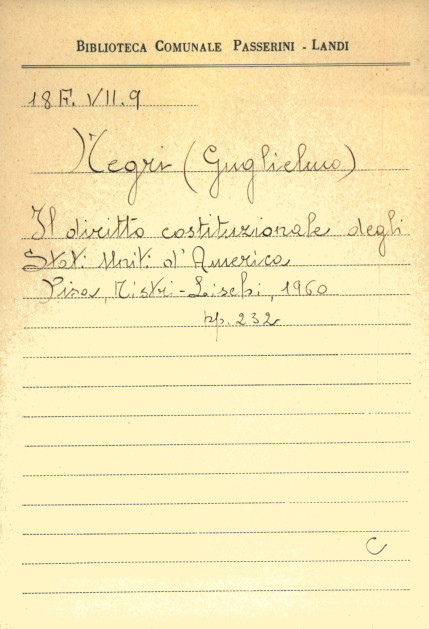 BIBLIOTECA COMUNALE PASSERINI - LANDI
18 F. VII. 9
Negri (Guglielmo)
Il diritto costituzionale degli
Stati Uniti d'America
Pisa, Nistri-Lischi, 1960
pp. 232
C